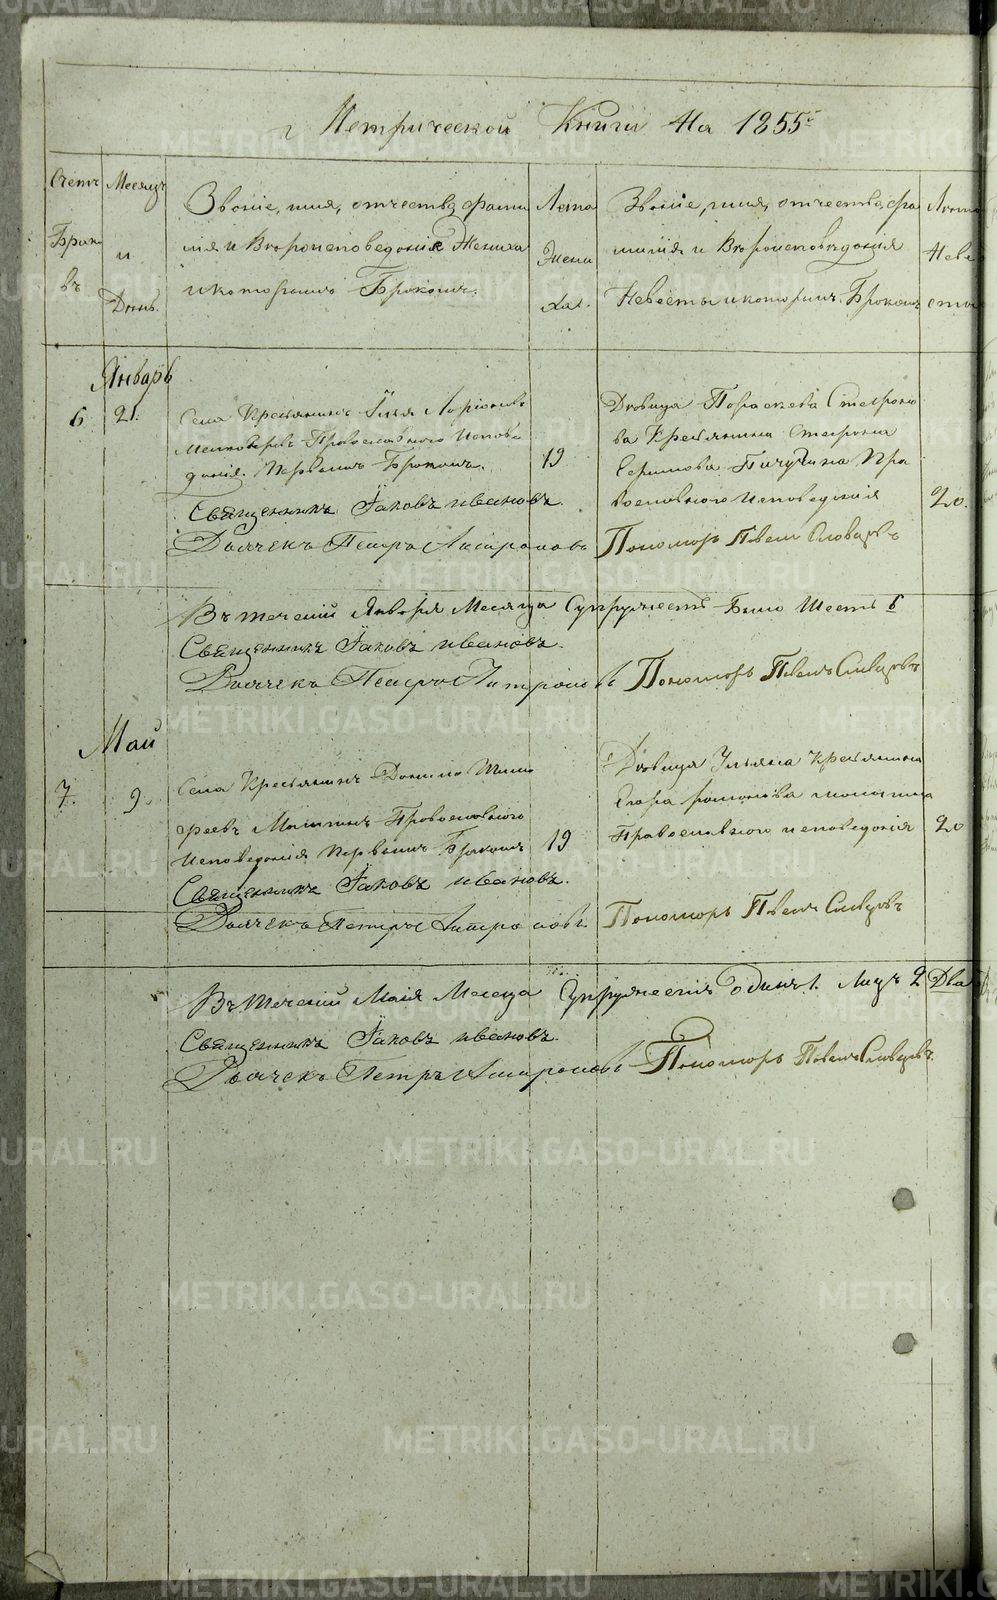 Метрической Книги На 1855й
Счетъ
Браковъ
Месяцъ
и
День.
Звоніе, имя, отчество, фами
лія и Вероисповедоніе Жениха
и которымъ Бракомъ.
Лета
Жени
ха.
Звоніе, имя, отчество, фа
милія и Вероисповѣдоніе
Невесты и которымъ Бракомъ
Лето
Неве
сты
Январь
6 21.
Села Крестьянинъ Илья Ларіоновъ
Православного Испове
донія. Первымъ Бракомъ.
19
Девица Пораскева Стефоно
ва Крестьянина Стефона
Пичугина Пра
вославного Исповедонія
20.
Священникъ Іаковъ Ивановъ.
Дьячекъ Петръ
Пономорь Павелъ Словцовъ
Въ течении Января Месяца Супружествъ Было Шесть 6
Священникъ Іаковъ Ивановъ.
Дьячекъ Петръ
Пономорь Павелъ Словцовъ
Май
7. 9.
Села Крестьянинъ Данило Тимо
феевъ Православного
Исповедонія Первымъ Бракомъ
19
Девица Ульяна Крестьянина
Егора Романова
Православного исповедонія
20
Священникъ Іаковъ Ивановъ.
Дьячекъ Петръ
Пономорь Павелъ Словцовъ
Въ Течении Маія Месеца Супружествъ Одинъ 1. Лицъ 2 Два
Священникъ Іаковъ Ивановъ.
Дьячекъ Петръ
Пономорь Павелъ Словцовъ.
METRIKI.GASO-URAL.RU